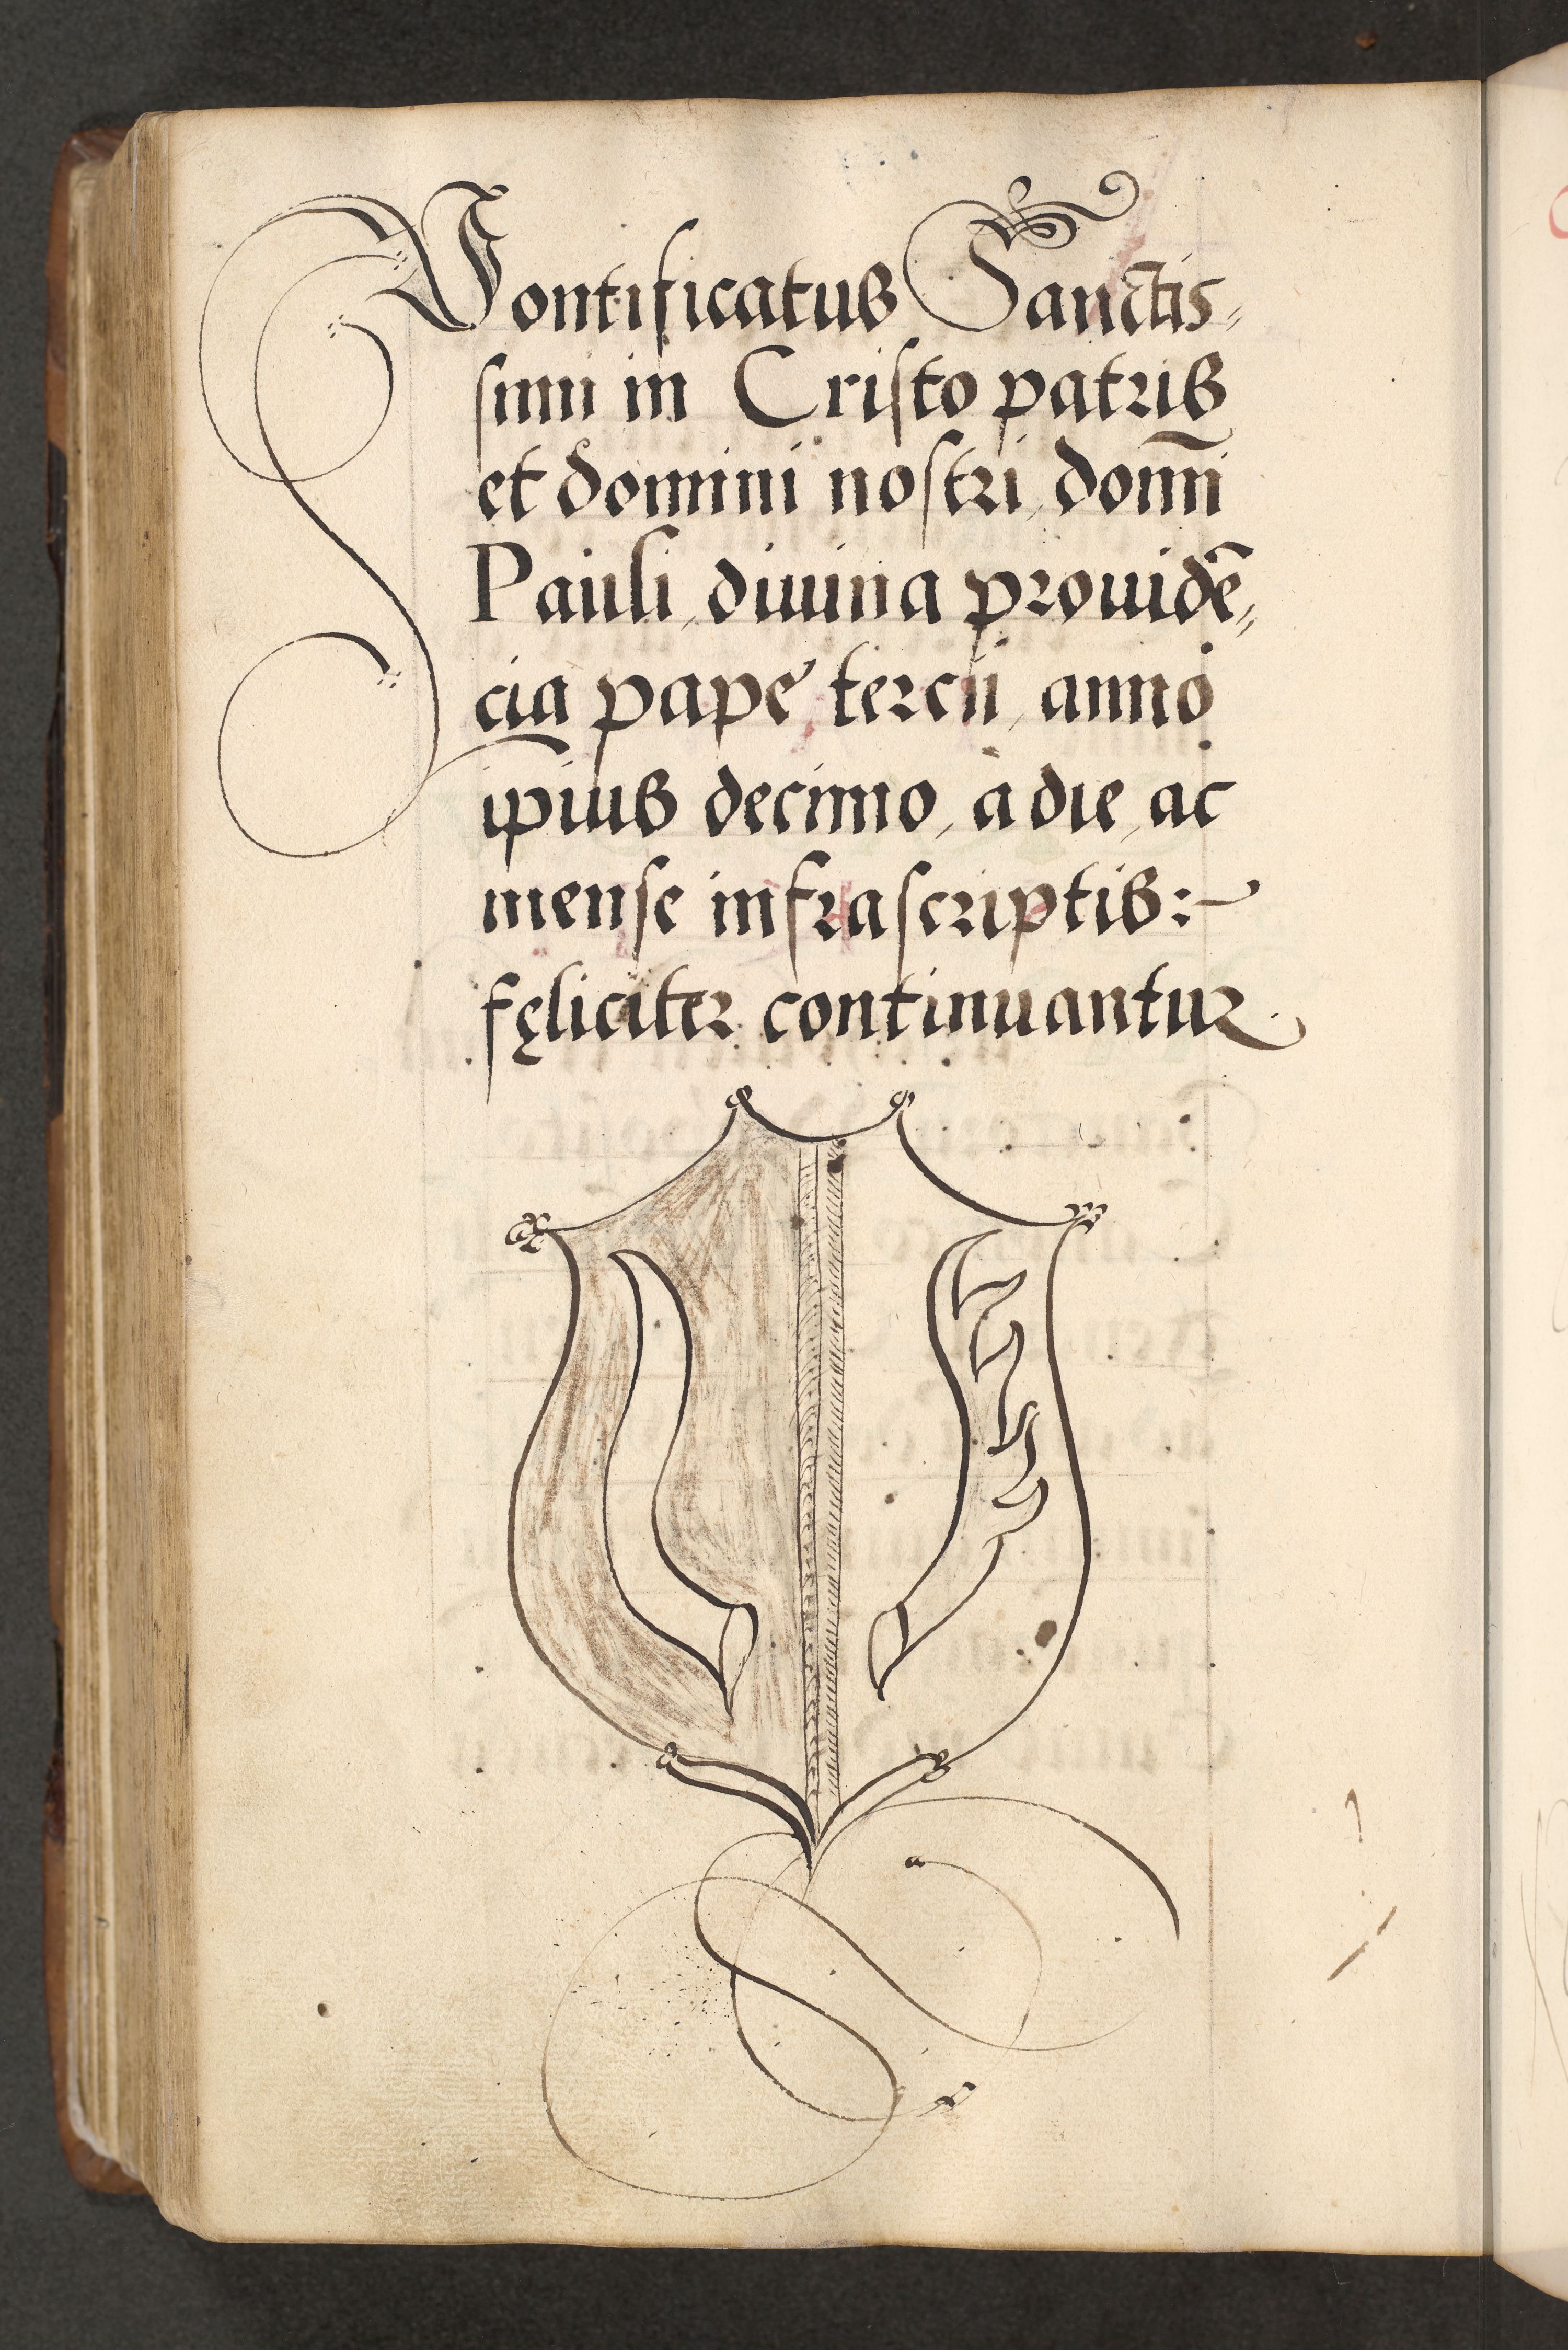 Pontificatus Sanctis⸗
simi in Cristo patris
et domini nostri, dom̄i
Pauli, diuina prouidē⸗
cia pape tercii, anno
ip̄ius decimo, a die, ac
mense infrascriptis:~
fęliciter continuantur.